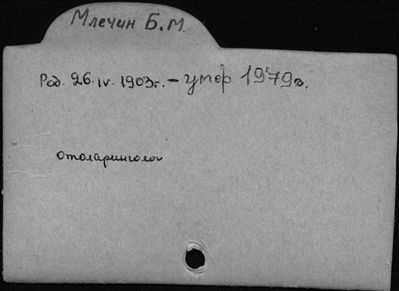 Млечин Б.М.
Род. 26.IV.1903г. – умер 1979г.
отоларинголог